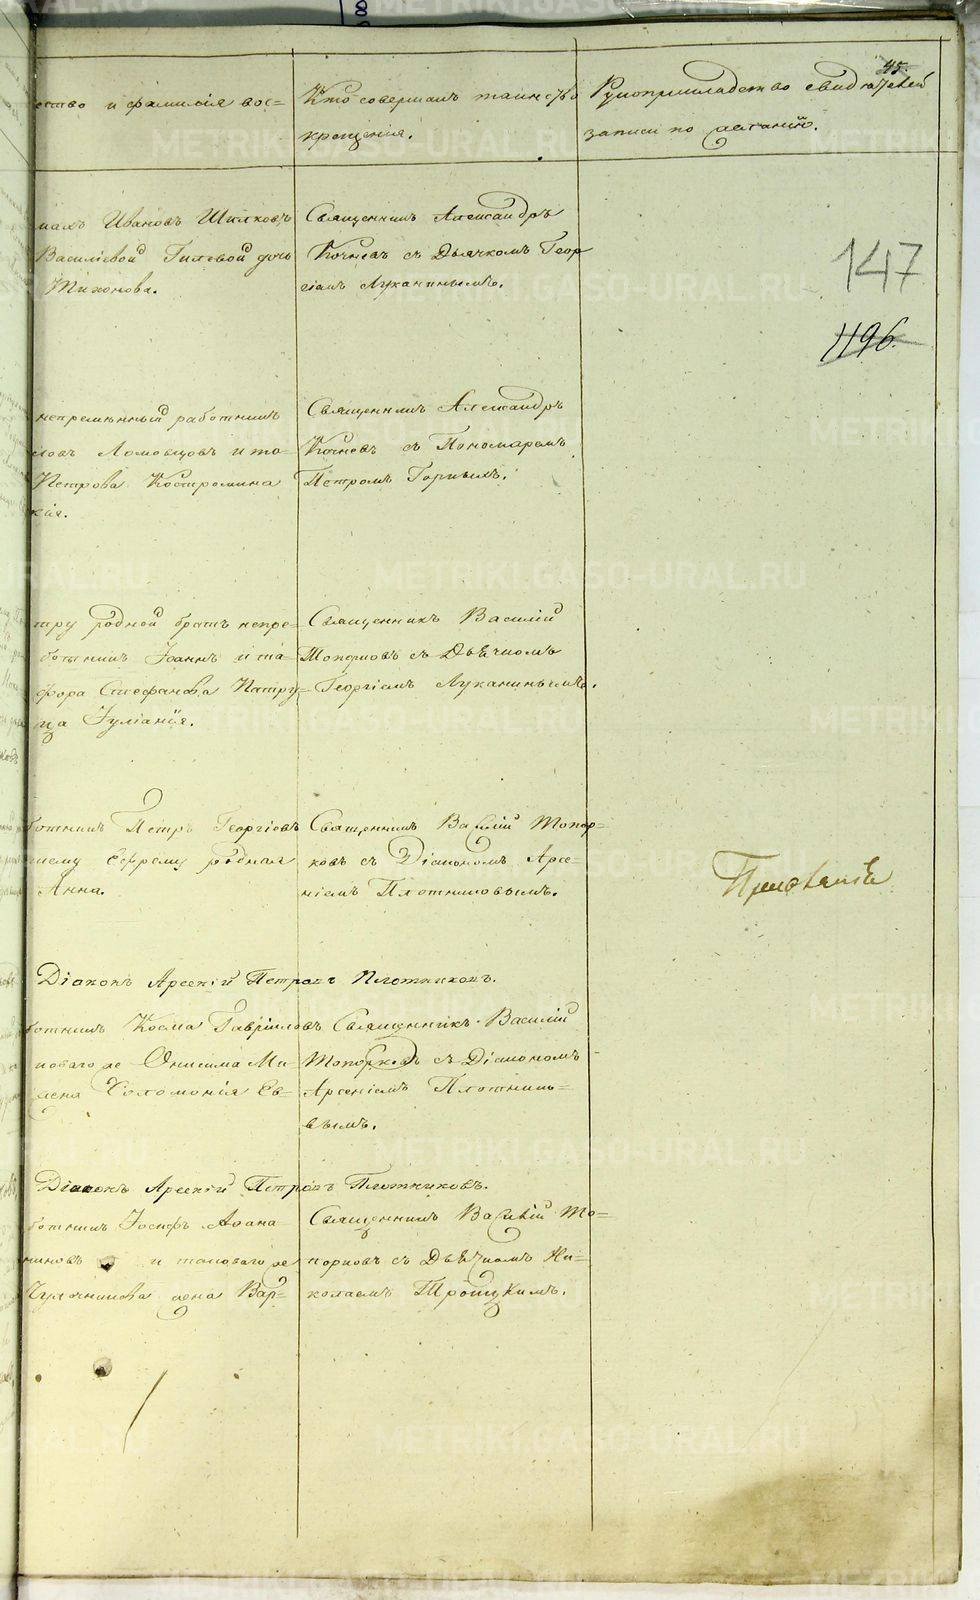 45.
ество и фамилія вос-
Кто совершалъ таинство
крещенія.
Рукоприкладство свидѣтелей
записи по желанію.
147
1196.
Ивановъ Шилковъ
Василіевой Гилевой дочь
Тихонова.
Священникъ Александръ
Кочневъ съ Дьячкомъ Геор
гіемъ Луканинымъ.
непремѣнный работникъ
ловъ Ломовцовъ и то-
Петрова Костромина
кія.
Священникъ Александръ
Кочневъ съ Пономаремъ
Петромъ Горныхъ.
тру родной братъ непре-
ботникъ Іоаннъ и та-
фора Стефанова Патру-
ца Іуліанія.
Священникъ Василій
Топорковъ съ Дьячкомъ
Георгіемъ Луканинымъ.
ботникъ Петръ Георгіевъ
шему Ефрему родная
Анна.
Священникъ Василій Топор-
ковъ съ Діакономъ Арсе-
ніемъ Плотниковымъ.
Діаконъ Арсеній Петровъ Плотниковъ.
ботникъ Косма Гавріиловъ
коваго же Онисима Ми
жена Соломонія Ев-
Священникъ Василій
Топорковъ съ Діакономъ
Арсеніемъ Плотнико-
вымъ.
Діаконъ Арсеній Петровъ Плотниковъ.
ботникъ Іосифъ Аѳана-
и таковаго же
жена Вар-
Священникъ Василій То-
порковъ съ Дьячкомъ Ни-
колаемъ Троицкимъ.
METRIKI.GASO-URAL.RU